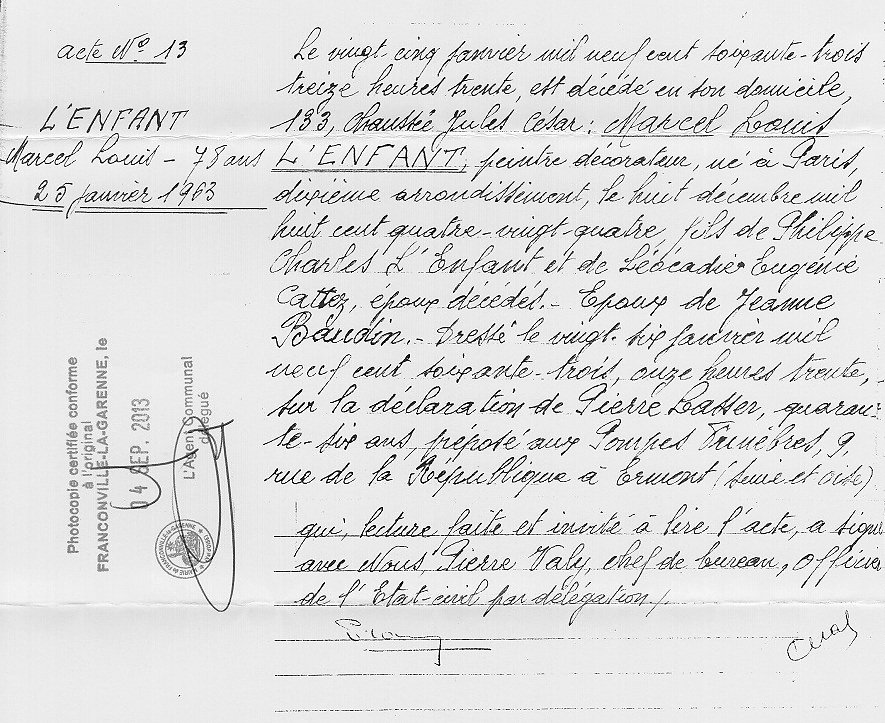 acte No 13
L'ENFANT
Marcel Louis - 78 ans
25 janvier 1963
Le vingt-cinq janvier mil neuf cent soixante-trois
treize heures trente, est décédé en son domicile,
133, Chaussée Jules César: Marcel Louis
L'ENFANT, peintre décorateur, né à Paris,
dixième arrondissement, le huit décembre mil
huit cent quatre-vingt-quatre, fils de Philippe
Charles L'Enfant et de Léocadie Eugénie
Cattez, époux décédés.- Epoux de Jeanne
Baudin.- Dressé le vingt-six janvier mil
neuf cent soixante-trois, onze heures trente,
sur la déclaration de Pierre Lasser, quaran-
te-six ans, préposé aux Pompes Funèbres, 9,
rue de la République à Ermont (Seine et Oise)
qui, lecture faite et invité à lire l'acte, a signé
avec Nous, Pierre Valy, chef de bureau, Officier
de l'Etat-civil par délégation./.
Photocopie certifiée conforme
à l'original
FRANCONVILLE-LA-GARENNE, le
04 SEP. 2013
L'Agent Communal
délégué